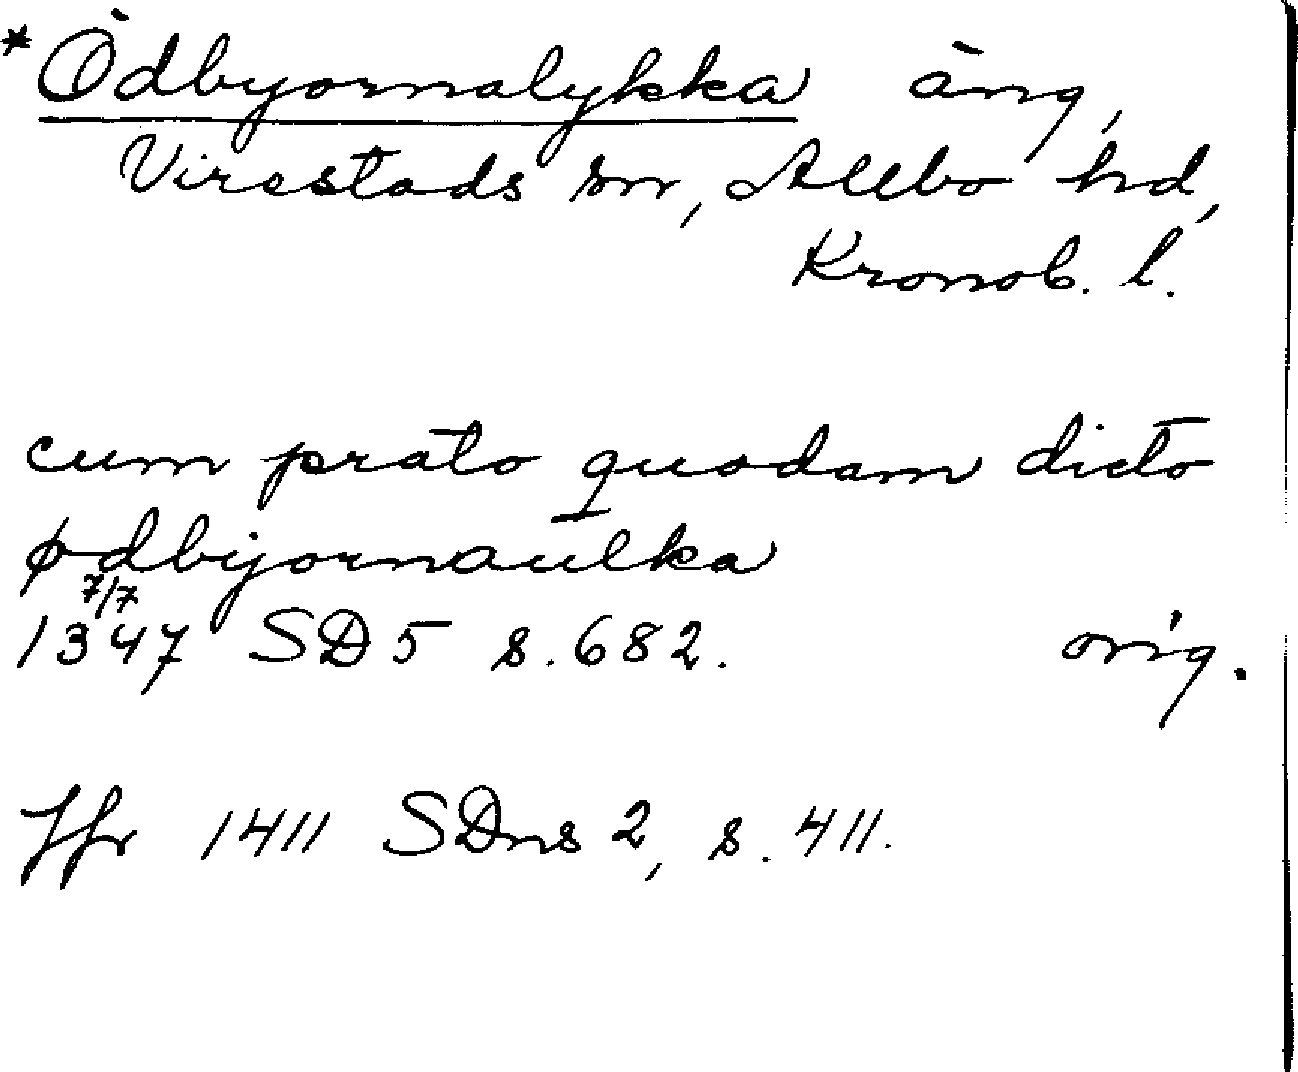 *Ödbyornalykka äng,
Virestads sn, Allbo hd,
Kronob. l.
cum prato quodam dicto
ødbijornaulka
7/7
1347 SD 5 s. 682. orig.
Jfr 1411 SDns 2, s. 411.